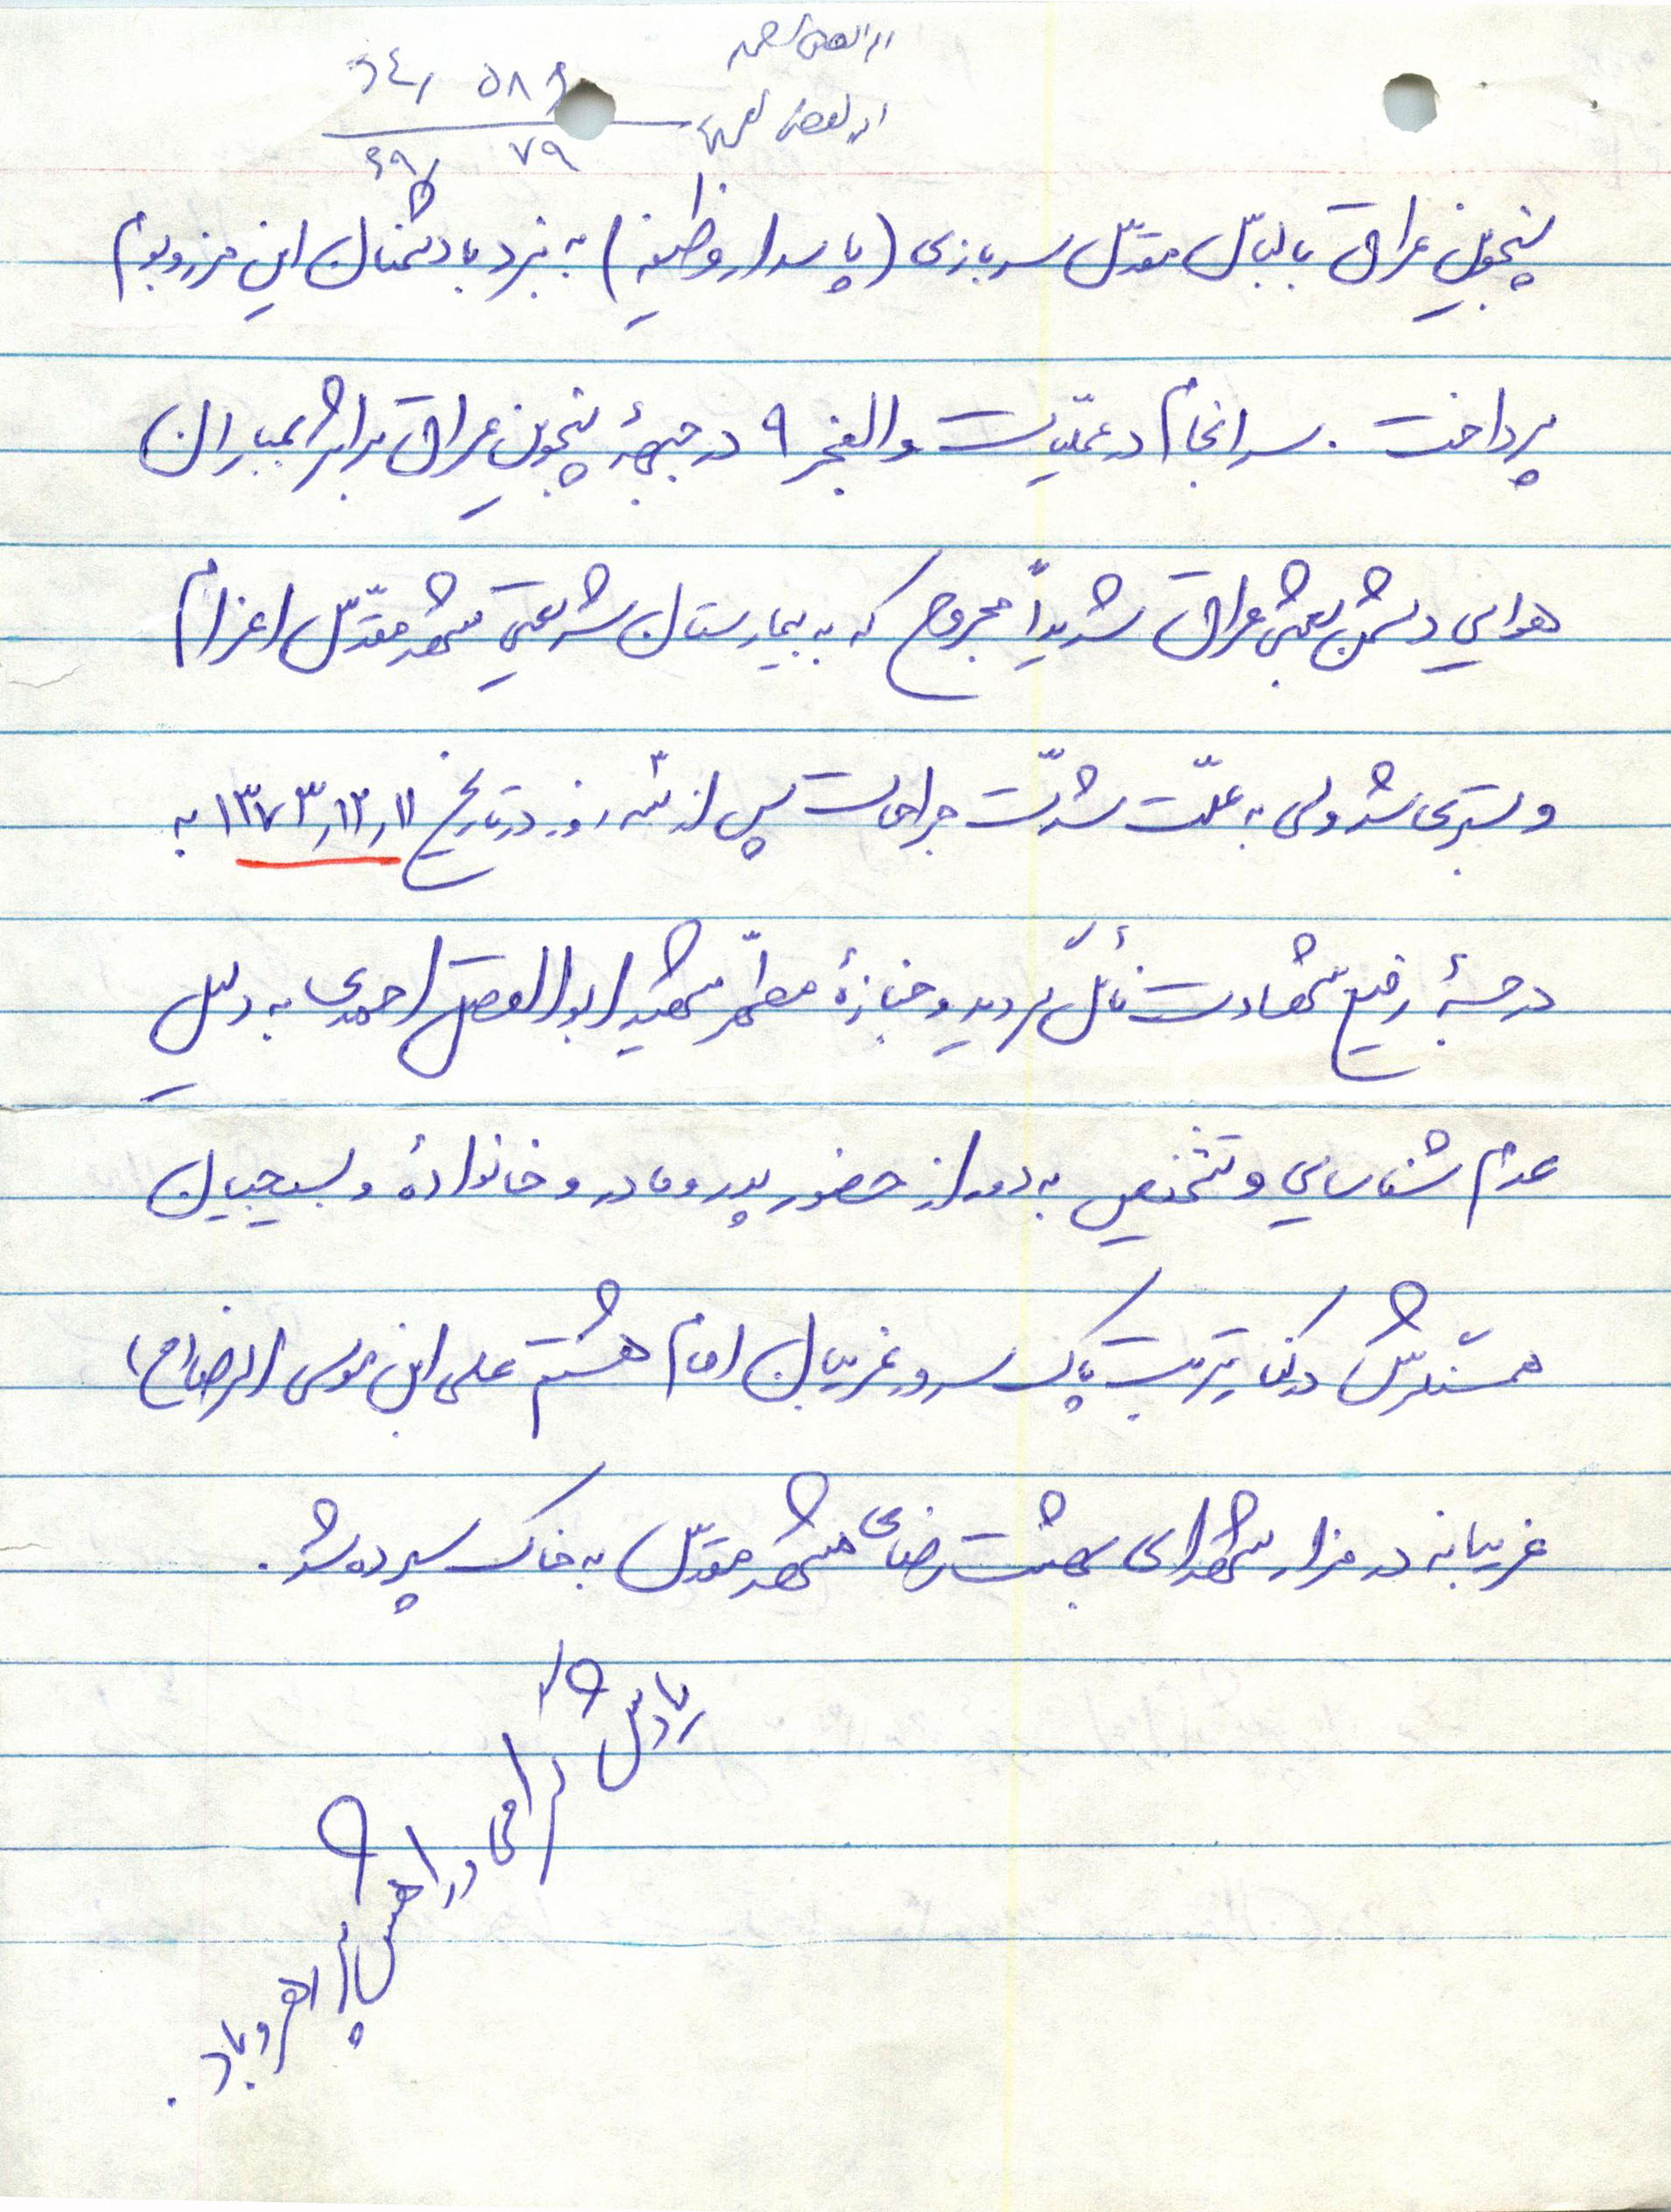 پنجوین عراق با لباس مقدّس سربازی (پاسدار وظیفه) به نبرد با دشمنان این مرز و بوم
پرداخت. سرانجام در عملیّات والفجر ۹ در جبههٔ پنجوین عراق بر اثر بمباران
هوایی دشمن بعثی عراق شدیداً مجروح که به بیمارستان شریعتی مشهد مقدّس اعزام
و بستری شد ولی به علّت شدّت جراحات پس از سه روز در تاریخ ۱۳۷۳٫۱۲٫۱۱ به
درجهٔ رفیع شهادت نائل گردید و جنازهٔ مطهّر شهید ابوالفضل احمدی به دلیل
عدم شناسایی و تشخیص به دور از حضور پدر و مادر و خانوادهٔ و بسیجیان
همسنگرش در کنار تربت پاک سرور غریبان امام هشتم علی ابن موسی الرضا (ع)
غریبانه در مزار شهدای بهشت رضای مشهد مقدّس به خاک سپرده شد.
یادش گرامی و راهش پر رهرو باد.